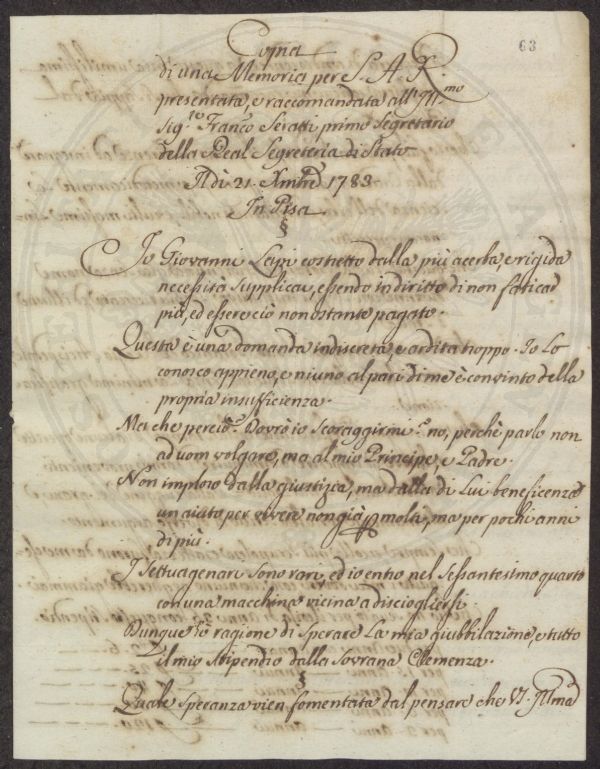 63
Copia
di una Memoria per S. A. R.
presentata, e raccomandata all'Ill.mo
Sig.re Franco Seratti primo Segretario
della Real Segreteria di Stato
A dì 21. Xmbre 1783
In Pisa
§
Io Giovanni Lapi costretto dalla più acerba, e rigida
necessità supplicai, essendo in diritto di non faticar
più, ed essere ciò non ostante pagato.
Questa è una domanda indiscreta, e ardita troppo. Io Lo
conosco appieno, e niuno al pari di me è convinto della
propria insufficienza.
Ma che perciò? Dovrò io scoraggirmi? no, perchè parlo non
ad uom volgare, ma al mio Principe, e Padre.
Non imploro dalla giustizia, ma dalla di Lui beneficenza
un aiuto per vivere non già mola, ma per pochi anni
di più.
I settuagenari sono rari, ed io entro nel sessantesimo quarto
con una macchina vicina a disciogliersi
Dunque ò ragione di sperare La mia giubbilazione, e tutto
il mio stipendio dalla Sovrana Clemenza.
§
Quale speranza vien fomentata dal pensare che VS. Illma